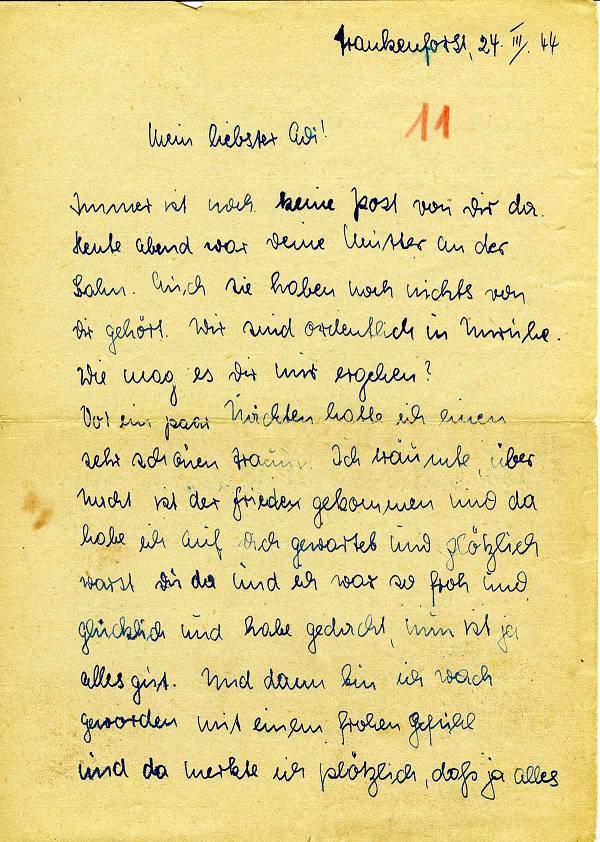 Frankenforst, 24. III. 44
11
Mein liebster Adi!
Immer ist noch keine Post von Dir da.
Heute abend war Deine Mutter an der
Bahn. Auch sie haben noch nichts von
Dir gehört. Wir sind ordentlich in Unruhe.
Wie mag es Dir nur ergehen?
Vor ein paar Nächten hatte ich einen
sehr schönen Traum. Ich träumte, über
Nacht ist der Frieden gekommen und da
habe ich auf Dich gewartet und plötzlich
warst Du da und ich war so froh und
glücklich und habe gedacht, nun ist ja
alles gut. Und dann bin ich wach
geworden mit einem frohen Gefühl
und da merkte ich plötzlich, daß ja alles